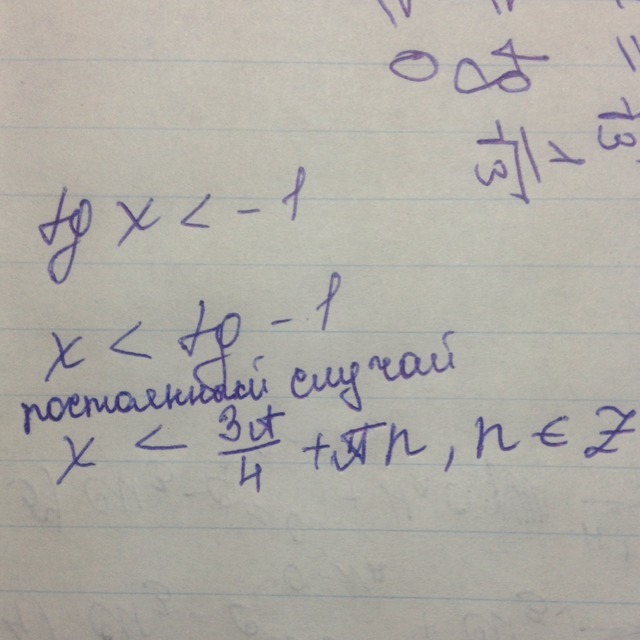 tg x < - 1
x < tg - 1
постоянный случай
x < 3π/4 + πn, n ∈ Z